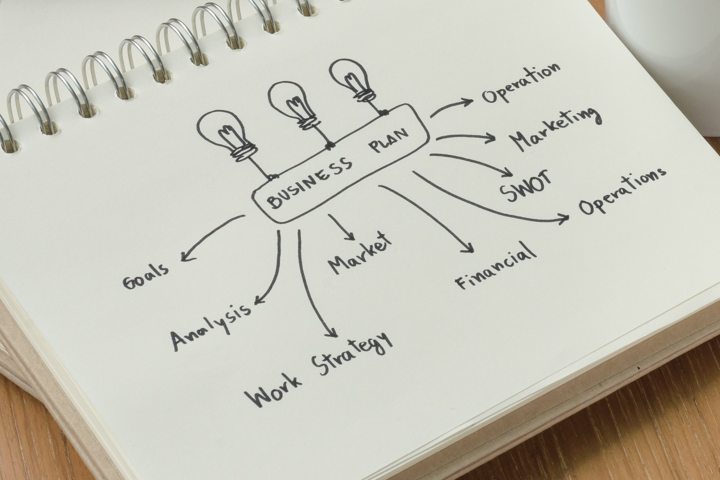 BUSINESS PLAN
Operation
Marketing
SWOT
Operations
Financial
Market
Work Strategy
Analysis
Goals